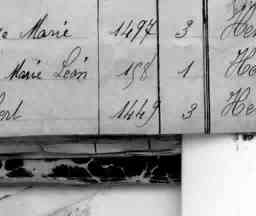 Marie 1497 3 He
Marie Léon 158 1 He
ert 1449 3 He